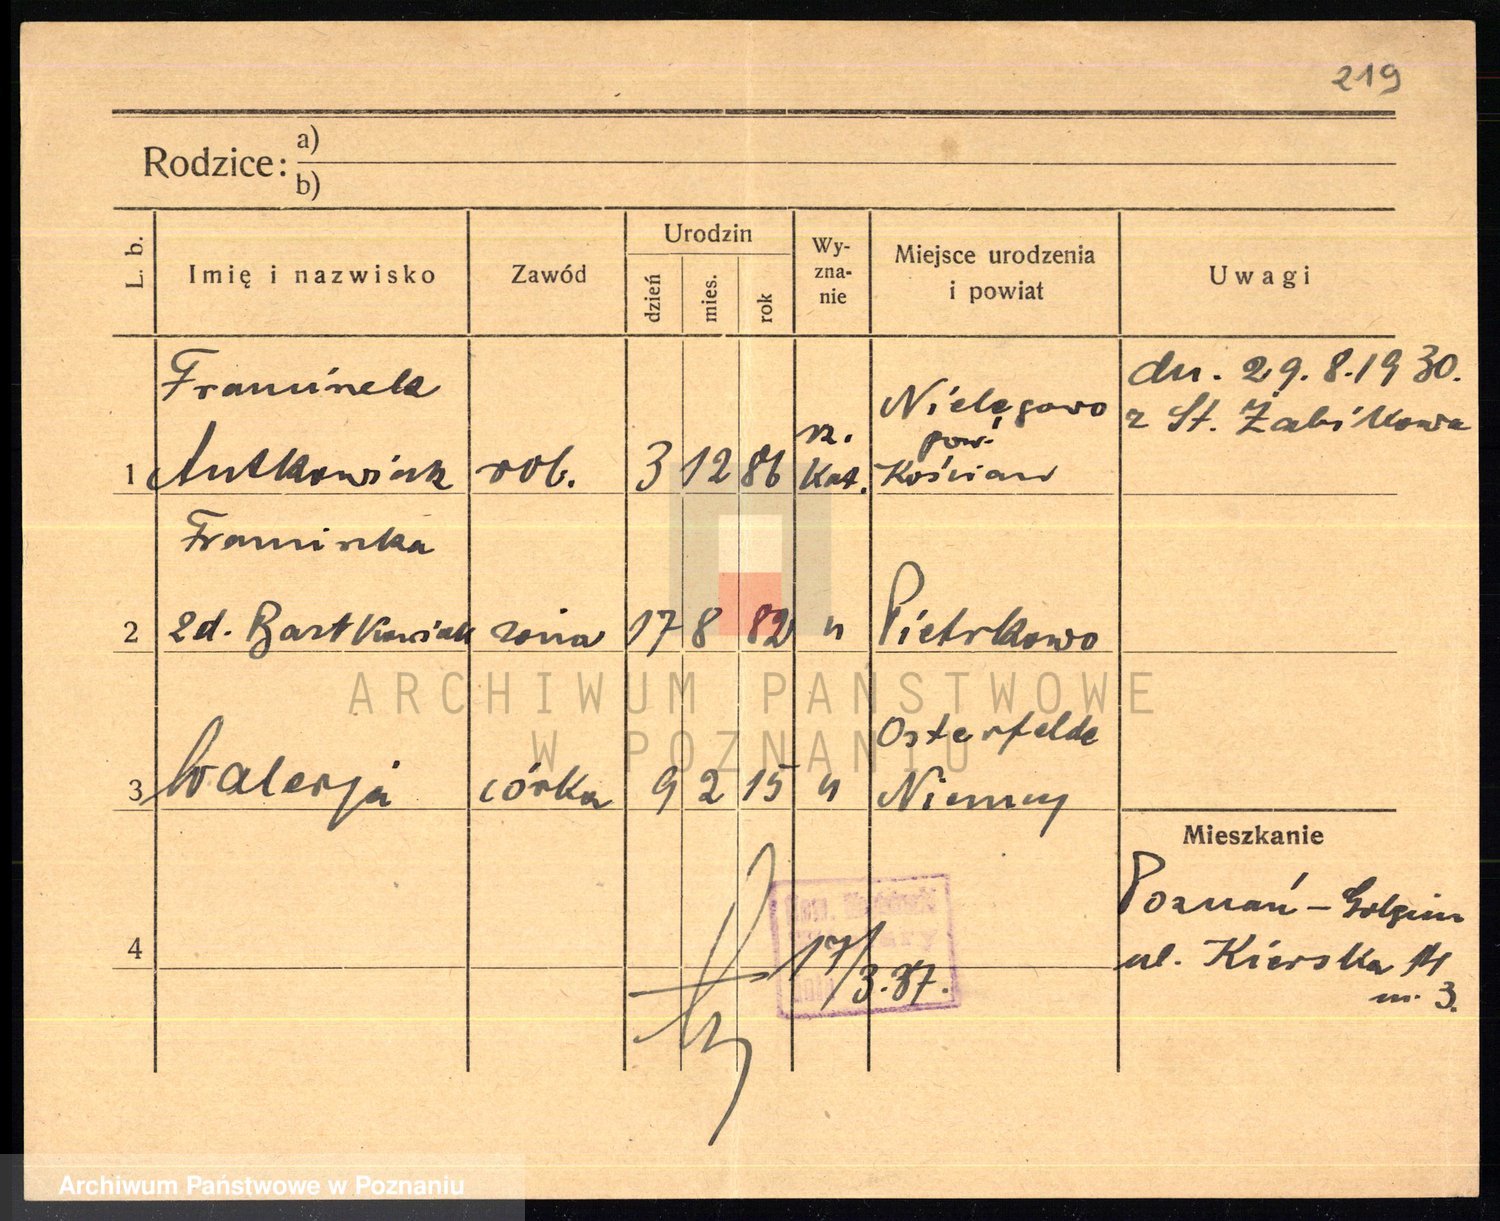 219
Rodzice:
a)
b)
L. b.
Imię i nazwisko
Zawód
Urodzin
dzień
mies.
rok
Wy-
zna-
nie
Miejsce urodzenia
i powiat
Uwagi
Franciszek
1 Antkowiak rob. 3 12 86 rz.
kat.
Nielęgowo
pow.
Kościan
dn. 29.8.1930.
z St. Żabikowa
Franciszka
2 zd. Bartkowiak żona 17 8 82 " Pietrkowo
3 Walerja córka 9 2 15 "
Osterfelde
Niemcy
4
17/3.37.
Mieszkanie
Poznań –
ul. Kierska 14
m. 3.
ARCHIWUM PAŃSTWOWE
W POZNANIU
Archiwum Państwowe w Poznaniu